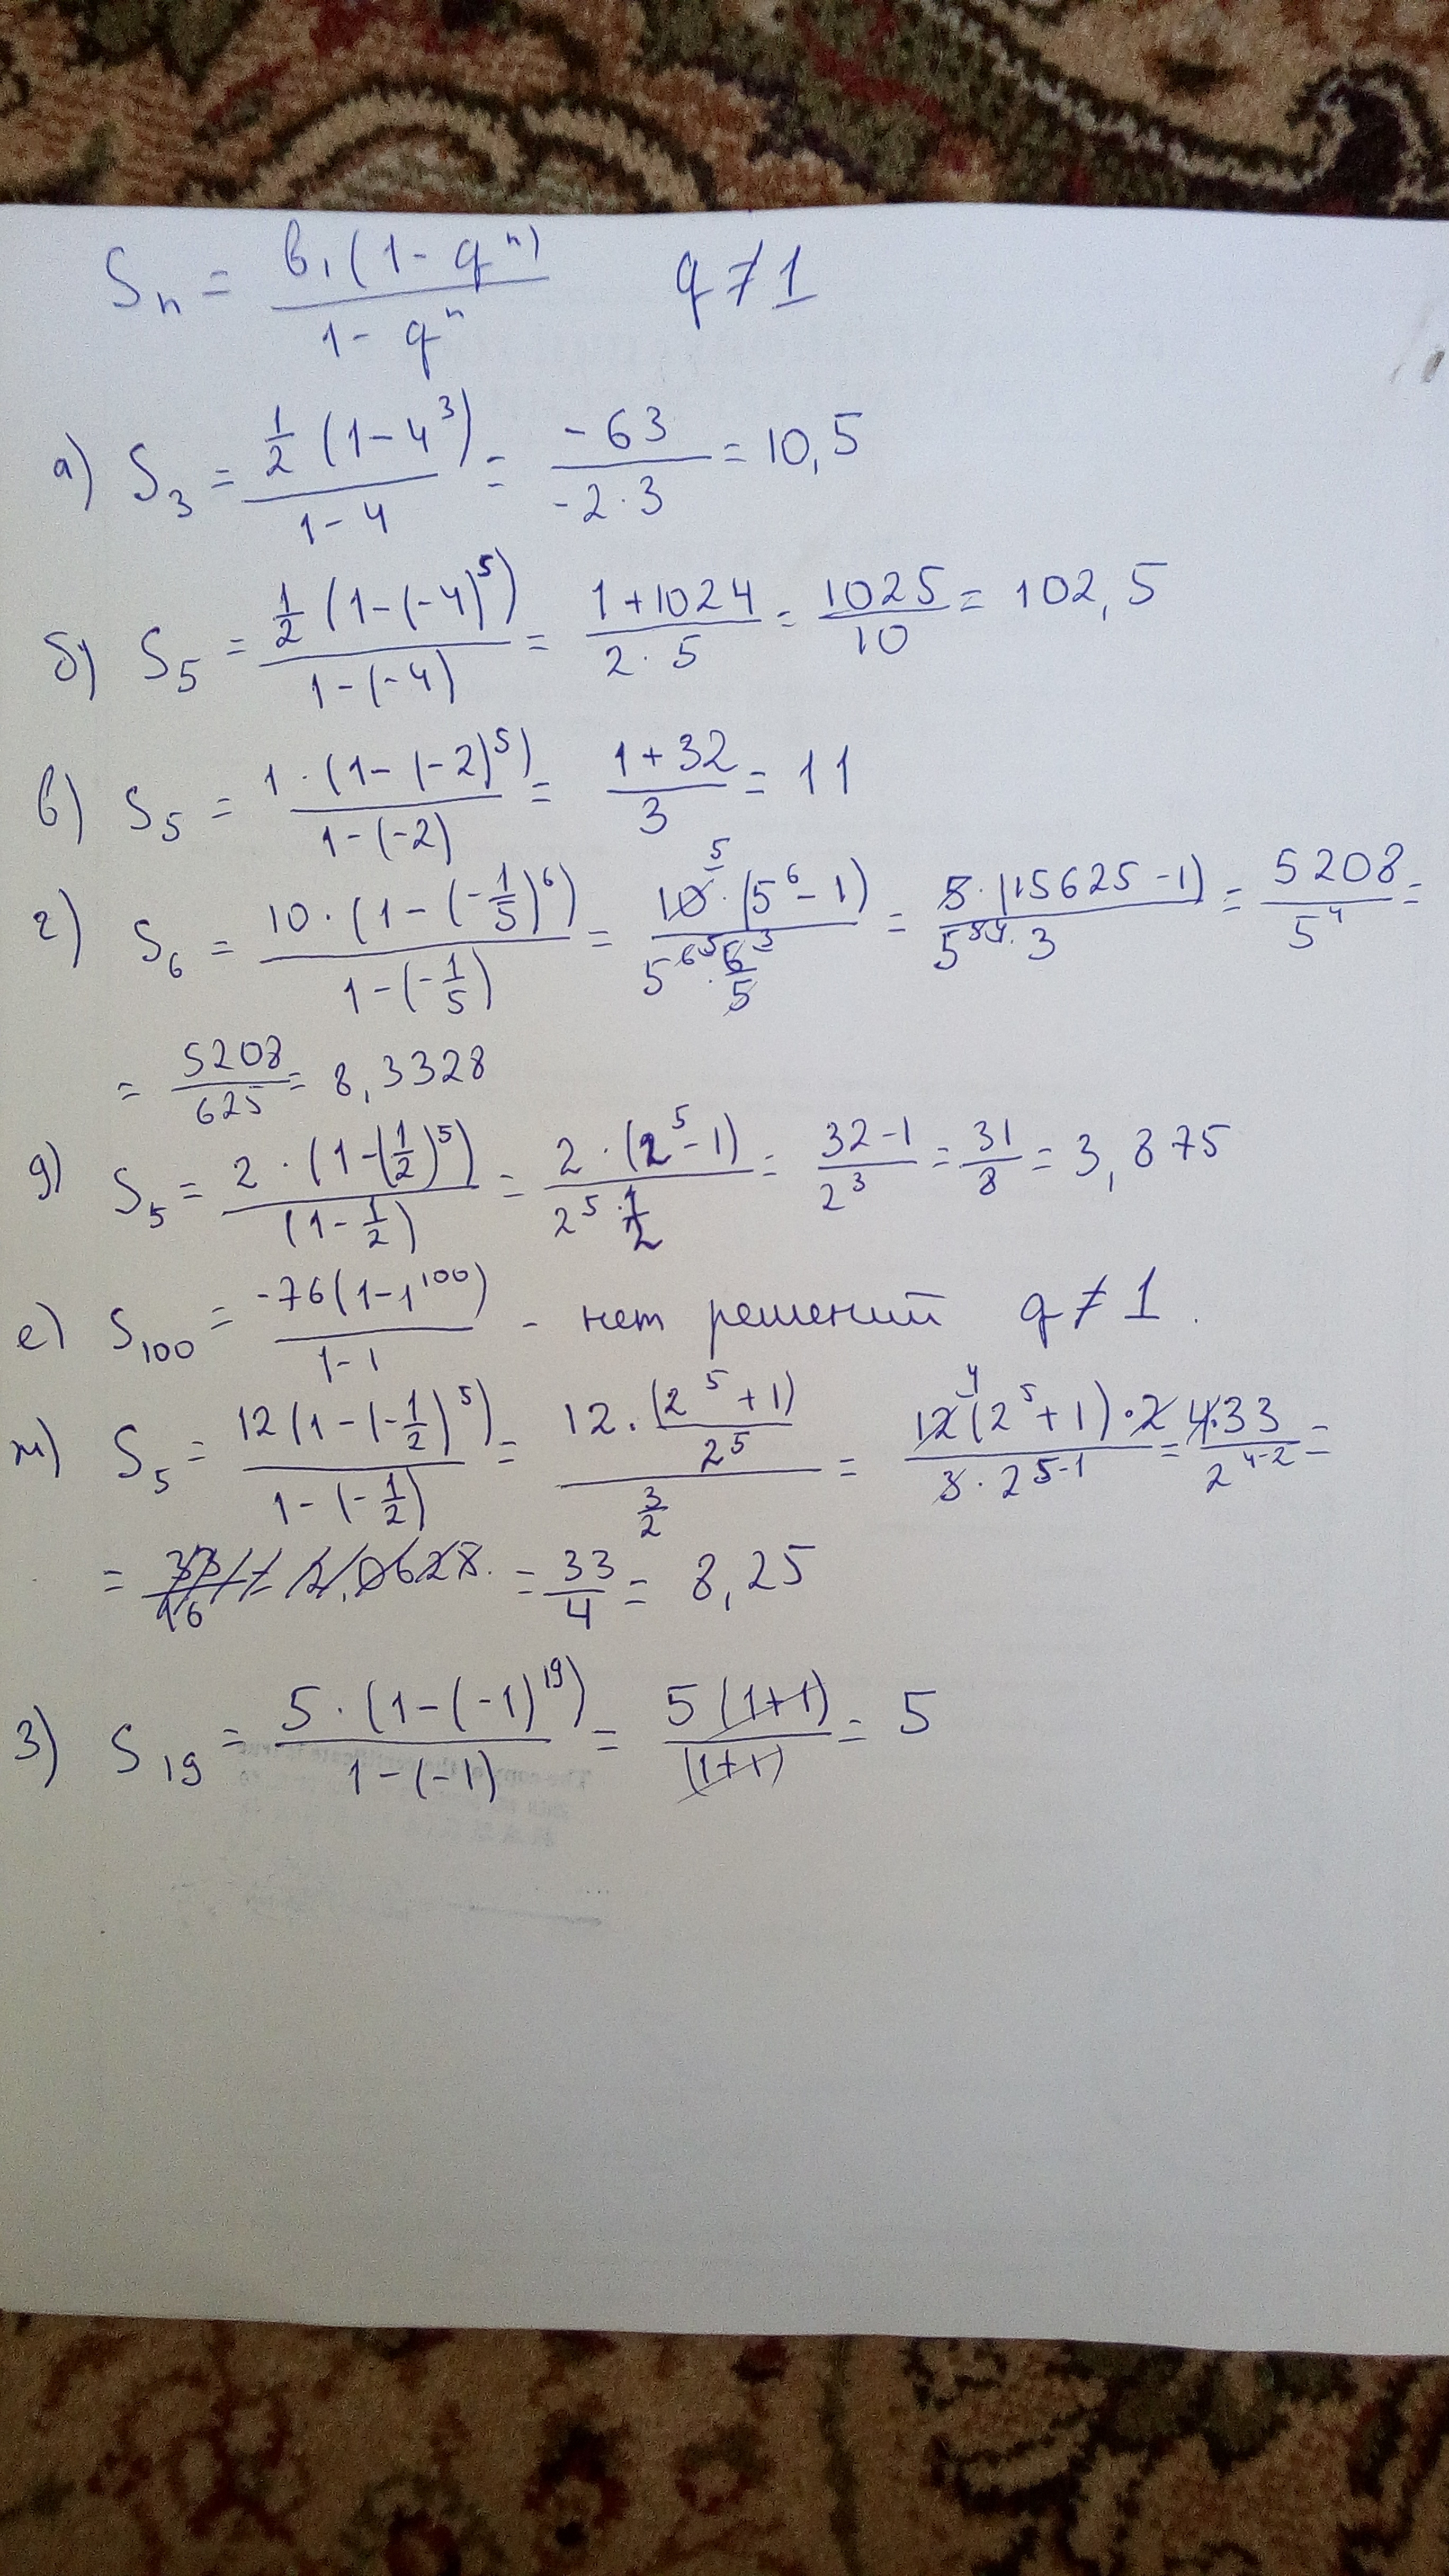 Sₙ = b₁(1 - qⁿ) / (1 - qⁿ)    q ≠ 1
а) S₃ = ½(1-4³) / (1-4) = -63 / (-2·3) = 10,5
б) S₅ = ½(1-(-4)⁵) / (1-(-4)) = (1+1024) / (2·5) = 1025/10 = 102,5
в) S₅ = 1·(1-(-2)⁵) / (1-(-2)) = (1+32)/3 = 11
г) S₆ = 10·(1-(-1/5)⁶) / (1-(-1/5)) = 10⁵·(5⁶-1) / (5⁶ ⁵·6³/5) = 5·(15625-1) / (5⁵ ⁴·3) = 5208/5⁴ =
= 5208/625 = 8,3328
д) S₅ = 2·(1-(1/2)⁵) / (1-1/2) = 2·(2⁵-1) / (2⁵·1/2) = (32-1)/2³ = 31/8 = 3,875
е) S₁₀₀ = -76(1-1¹⁰⁰) / (1-1) - нет решений q ≠ 1.
ж) S₅ = 12(1-(-1/2)⁵) / (1-(-1/2)) = 12·(2⁵+1)/2⁵ / (3/2) = 12⁴(2⁵+1)·2 / (3·2⁵⁻¹) = 4·33 / 2⁴⁻² =
= 33/16 = 2,0628. = 33/4 = 8,25
з) S₁₉ = 5·(1-(-1)¹⁹) / (1-(-1)) = 5(1+1) / (1+1) = 5